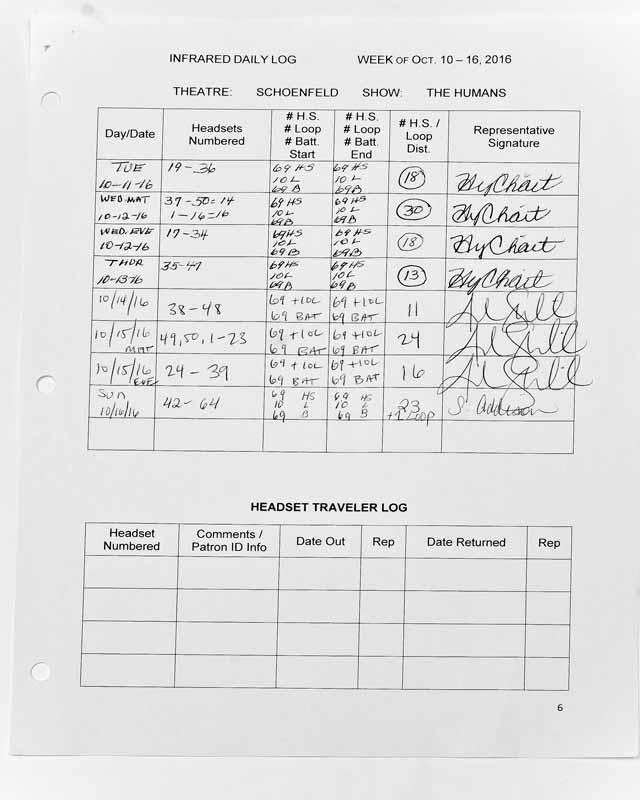 INFRARED DAILY LOG WEEK OF OCT. 10 – 16, 2016
THEATRE: SCHOENFELD SHOW: THE HUMANS
Day/Date Headsets Numbered # H.S. # Loop # Batt. Start # H.S. # Loop # Batt. End # H.S. / Loop Dist. Representative Signature
TUE 10-11-16 19-36 69 HS 10 L 69 B 69 HS 10 L 69 B 18 HyChart
WED. MAT 10-12-16 37-50=14 1-16=16 69 HS 10 L 69 B 69 HS 10 L 69 B 30 HyChart
WED. EVE 10-12-16 17-34 69 HS 10 L 69 B 69 HS 10 L 69 B 18 HyChart
THUR 10-13-16 35-47 69 HS 10 L 69 B 69 HS 10 L 69 B 13 HyChart
10/14/16 38-48 69 +10L 69 BAT 69 +10L 69 BAT 11
10/15/16 MAT 49,50,1-23 69 +10L 69 BAT 69 +10L 69 BAT 24
10/15/16 EVE 24-39 69 +10L 69 BAT 69 +10L 69 BAT 16
SUN 10/16/16 42-64 69 HS 10 L 69 B 69 HS 10 L 69 B 23 +1 LOOP S. Addison
HEADSET TRAVELER LOG
Headset Numbered Comments / Patron ID Info Date Out Rep Date Returned Rep
6